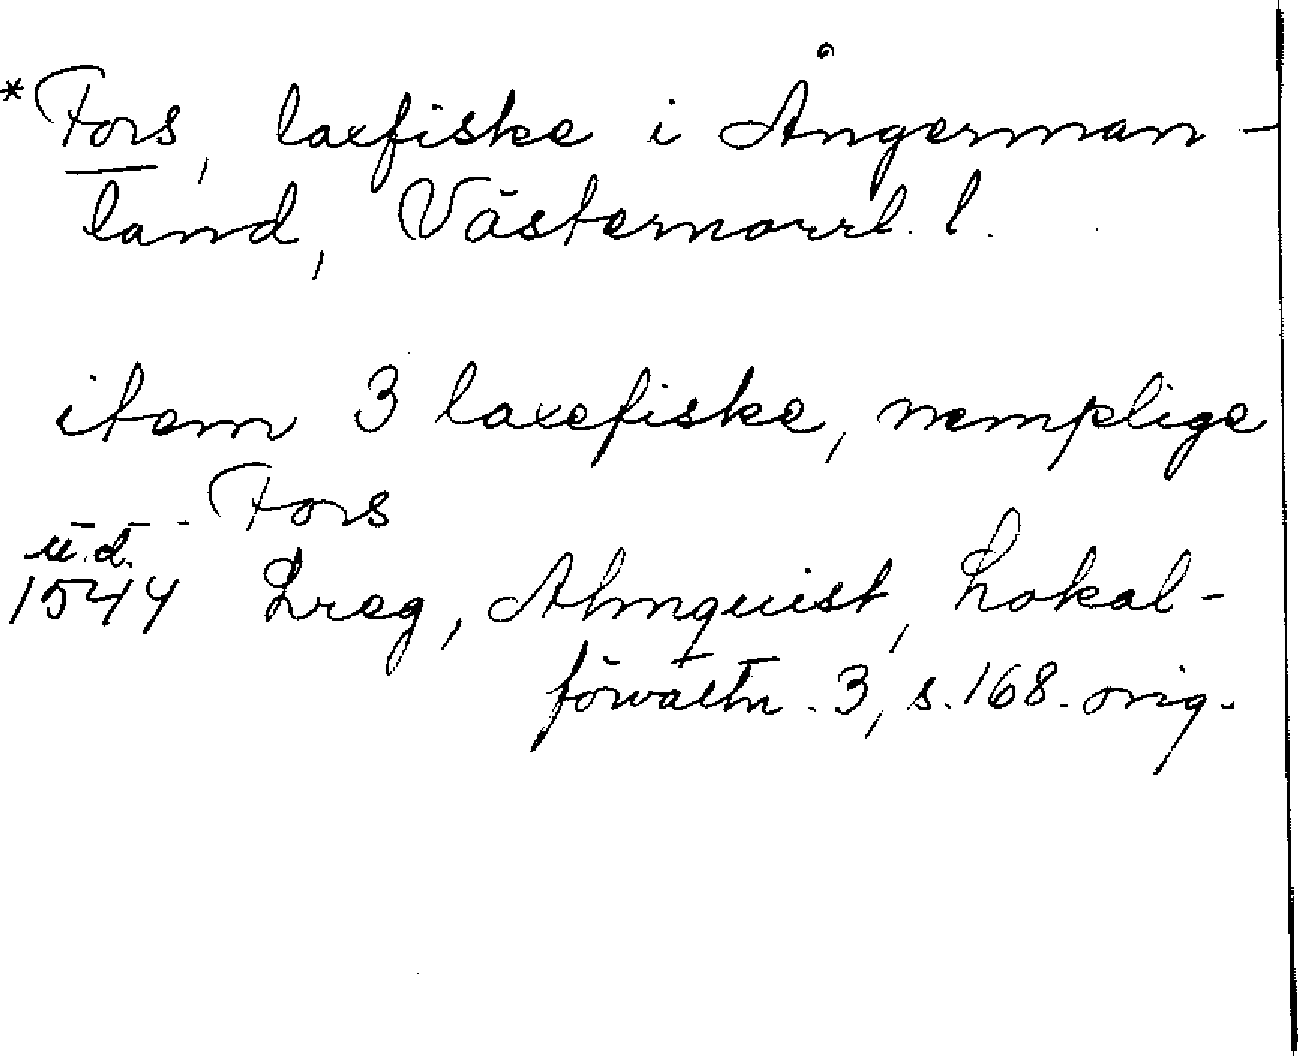 *Fors, laxfiske i Ångerman-
land, Västernorrl. l.
item 3 laxefiske, nemplige
- - - Fors
u.d.
1544 Lreg, Almquist, Lokal-
förvaltn. 3, s. 168. orig.